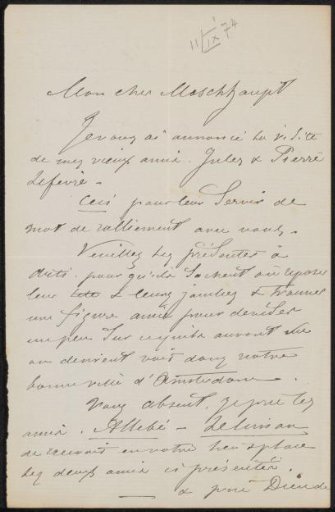 11/IX 74
Mon cher Moschhaupt
Je vous ai annoncé la visite
de mes vieux amis Jules & Pierre
Lefevre.
Ceci pour leur servir de
mot de ralliement avec vous.
Veuillez les présenter à
Arti pour qu'ils sachent où reposer
leur tête & leurs jambes & trouver
une figure amie pour deviser
un peu sur ce qu'ils auront vu
ou devront voir dans notre
bonne ville d'Amsterdam.
Vous absent, je prie les
amis. Allebé
de recevoir en votre lieu & place
les deux amis ci présentés.
& prie Dieu de